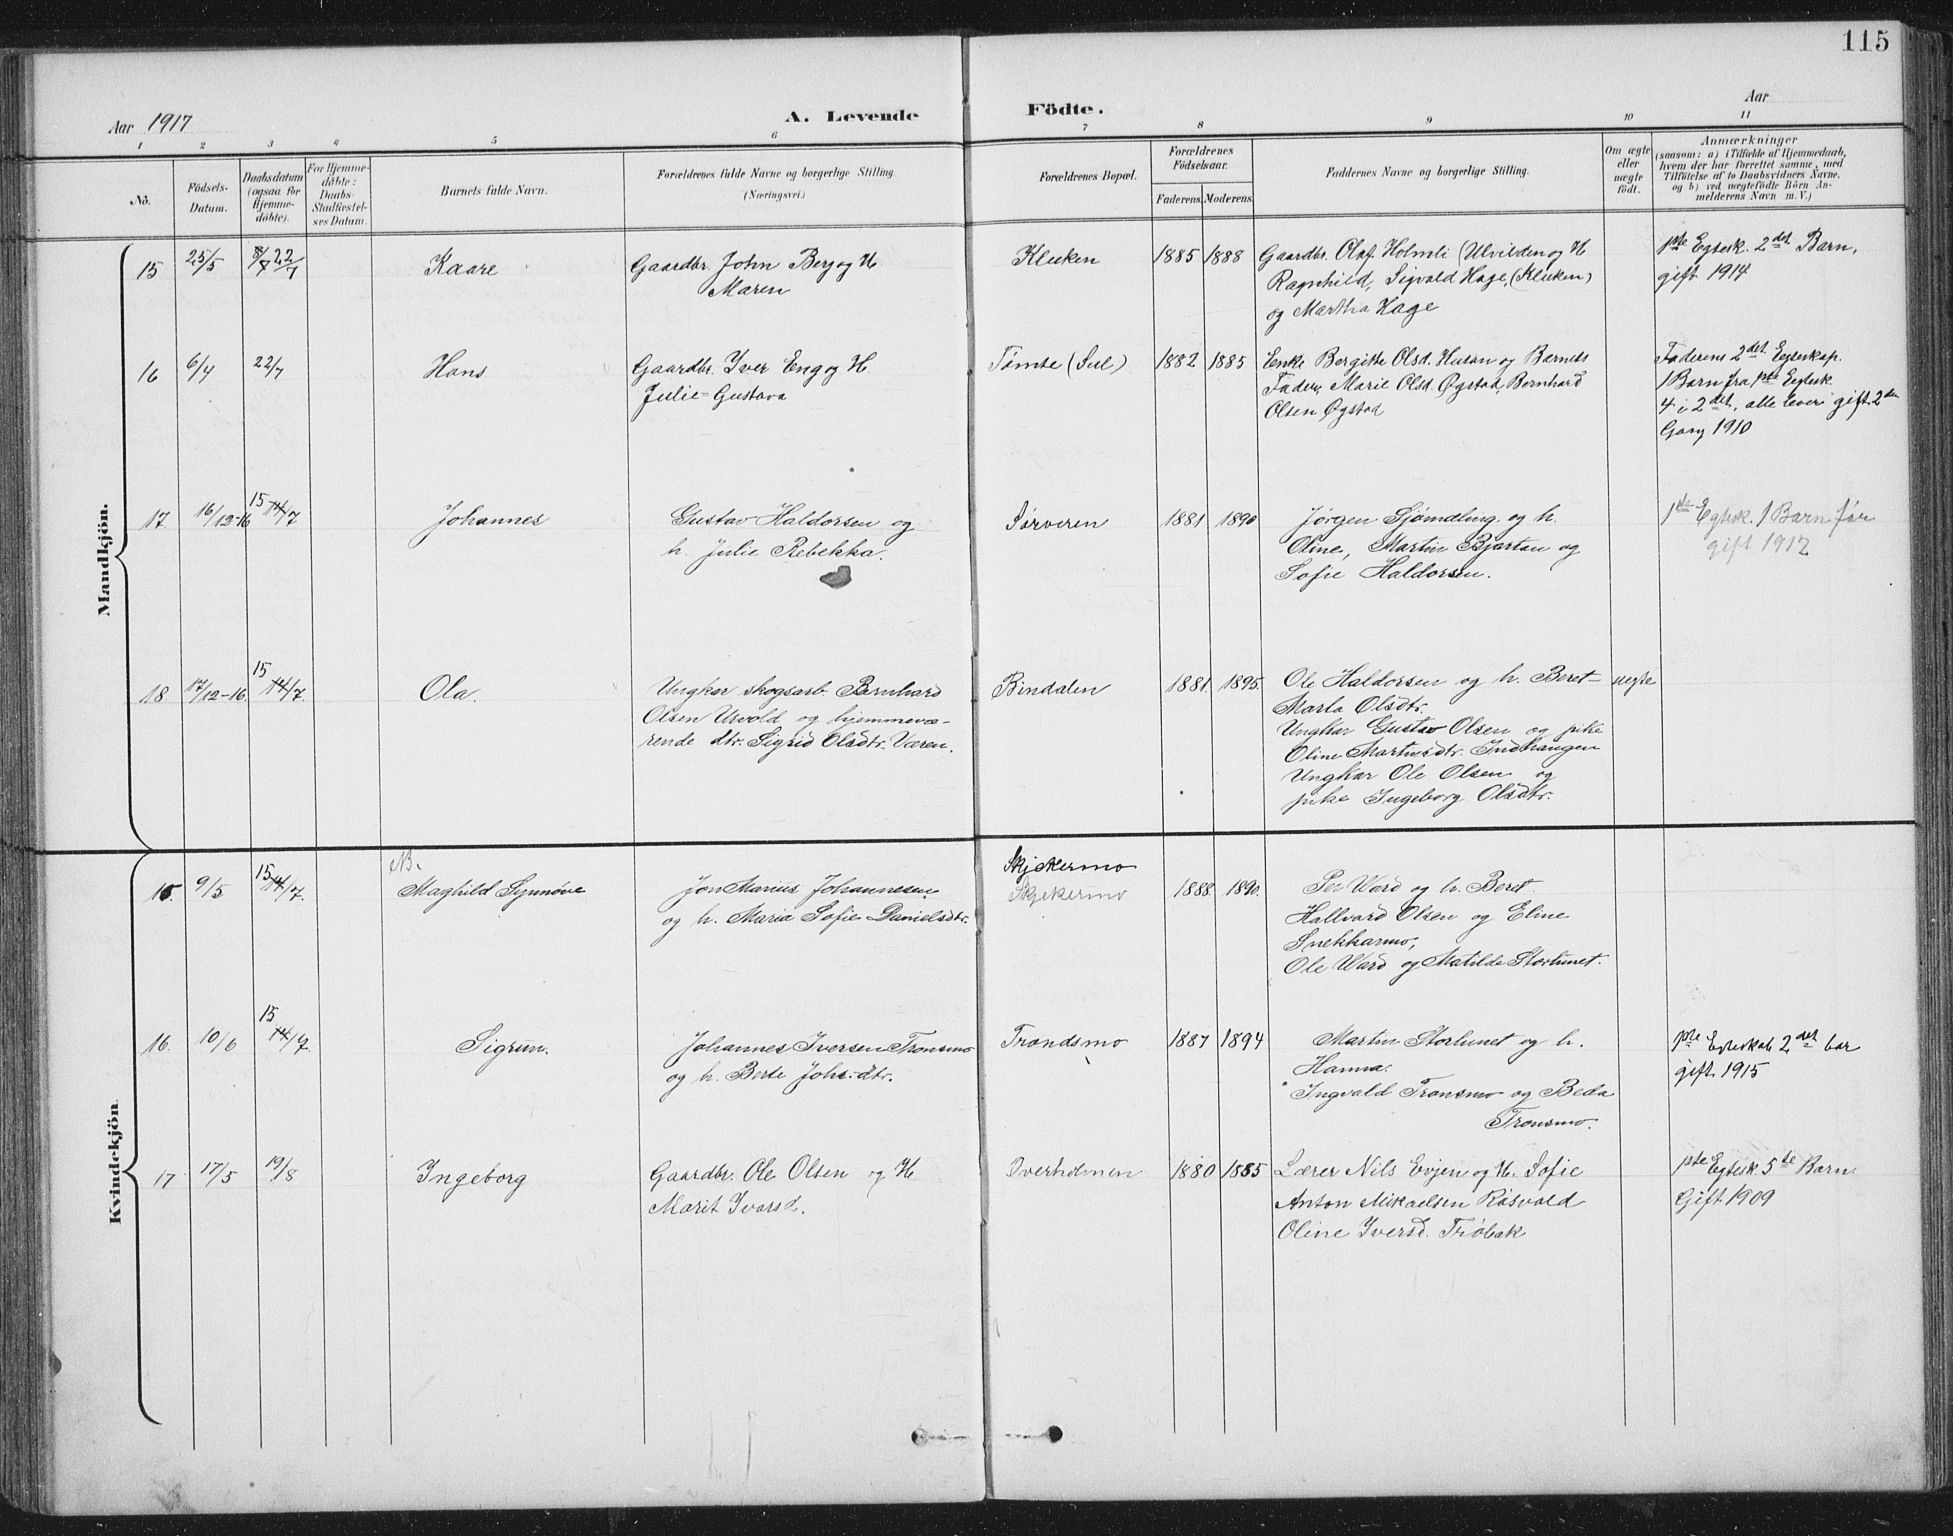 115
Aar 1917
A. Levende Födte.
Aar
1 2 3 4 5 6 7 8 9 10 11
No.
Födsels-Datum.
Daabsdatum (ogsaa for Hjemme-döbte).
For Hjemme-döbte: Daabs Stadfæstel-ses Datum.
Barnets fulde Navn.
Forældrenes fulde Navne og borgerlige Stilling.
(Næringsvei.)
Forældrenes Bopæl.
Forældrenes Födselsaar.
Faderens. Moderens.
Faddernes Navne og borgerlige Stilling.
Om ægte eller uægte født.
Anmærkninger
(saasom: a) i Tilfælde af Hjemmedaab,
hvem der har forrettet samme, med
Tilføielse af to Daabsvidners Navne,
og b) ved uægtefödte Börn An-
melderens Navn m.V.)
Mandkjön.
15 25/5 22/7 Kaare
Gaardbr. John Berg og H
Maren
Kluken 1885 1888
Gaardbr. Olaf Holmli (Ulvilden og H
Ragnhild, Sigvald Hage, (Kluken)
og Martha Hage
1ste Egtesk. 2det Barn,
gift 1914
16 6/4 22/7 Hans
Gaardbr. Iver Eng og H.
Julie-Gustava
Tømte (Sul) 1882 1885
Enke Bergitte Olsd. Husan og Barnets
Fader, Marie Olsd. Øgstad, Bernhard
Olsen Øgstad
Faderens 2det Egteskap.
1 Barn fra 1ste Egtesk.
4 i 2det, alle lever gift 2den
Gang 1910
17. 16/12-16 15 14/7 Johannes
Gustav Haldorsen og
h. Julie Rebekka.
Sørveren 1881 1890
Jørgen Sjømæling og h.
Oline, Martin Bjartan og
Sofie Haldorsen.
1ste Egtesk. 1 Barn før
gift 1912
18 17/12-16. 15 14/7. Ola.
Ungkar skogsarb. Bernhard
Olsen Urvold og hjemmevæ-
rende dtr. Sigrid Olsdtr. Væren.
Bindalen 1881. 1895.
Ole Haldorsen og h. Beret-
Marta Olsdtr.
Ungkar Gustav Olsen og pike
Oline Martinsdtr. Indhaugen
Ungkar Ole Olsen og
pike Ingeborg Olsdtr.
uegte
Kvindekjön.
15 9/5 15 14/7. NB.
Maghild Synnöve
Jon Marius Johannesen
og h. Maria Sofie Danielsdtr.
Skjækermo
Skjekermo
1888. 1890.
Per Ward og h. Beret.
Hallvard Olsen og Eline
Snekkarmo,
Ole Ward og Matilde Storlunet.
16. 10/6 15 14/7. Sigrun.
Johannes Iversen Tronsmo
og h. Berte Johs.dtr.
Trondsmo 1887 1894
Martin Storlunet og h.
Hanna.
Ingvald Tronsmo og Beda
Tronsmo.
1ste Egteskab 2det bar
gift 1915
17 17/5 19/8 Ingeborg
Gaardbr. Ole Olsen og H
Marit Ivarsd.
Overholmen 1880 1885
Lærer Nils Evjen og H. Sofie
Anton Mikaelsen Røsvold
Oline Iversd. Trøbak
1ste Egtesk 5te Barn.
Gift 1909